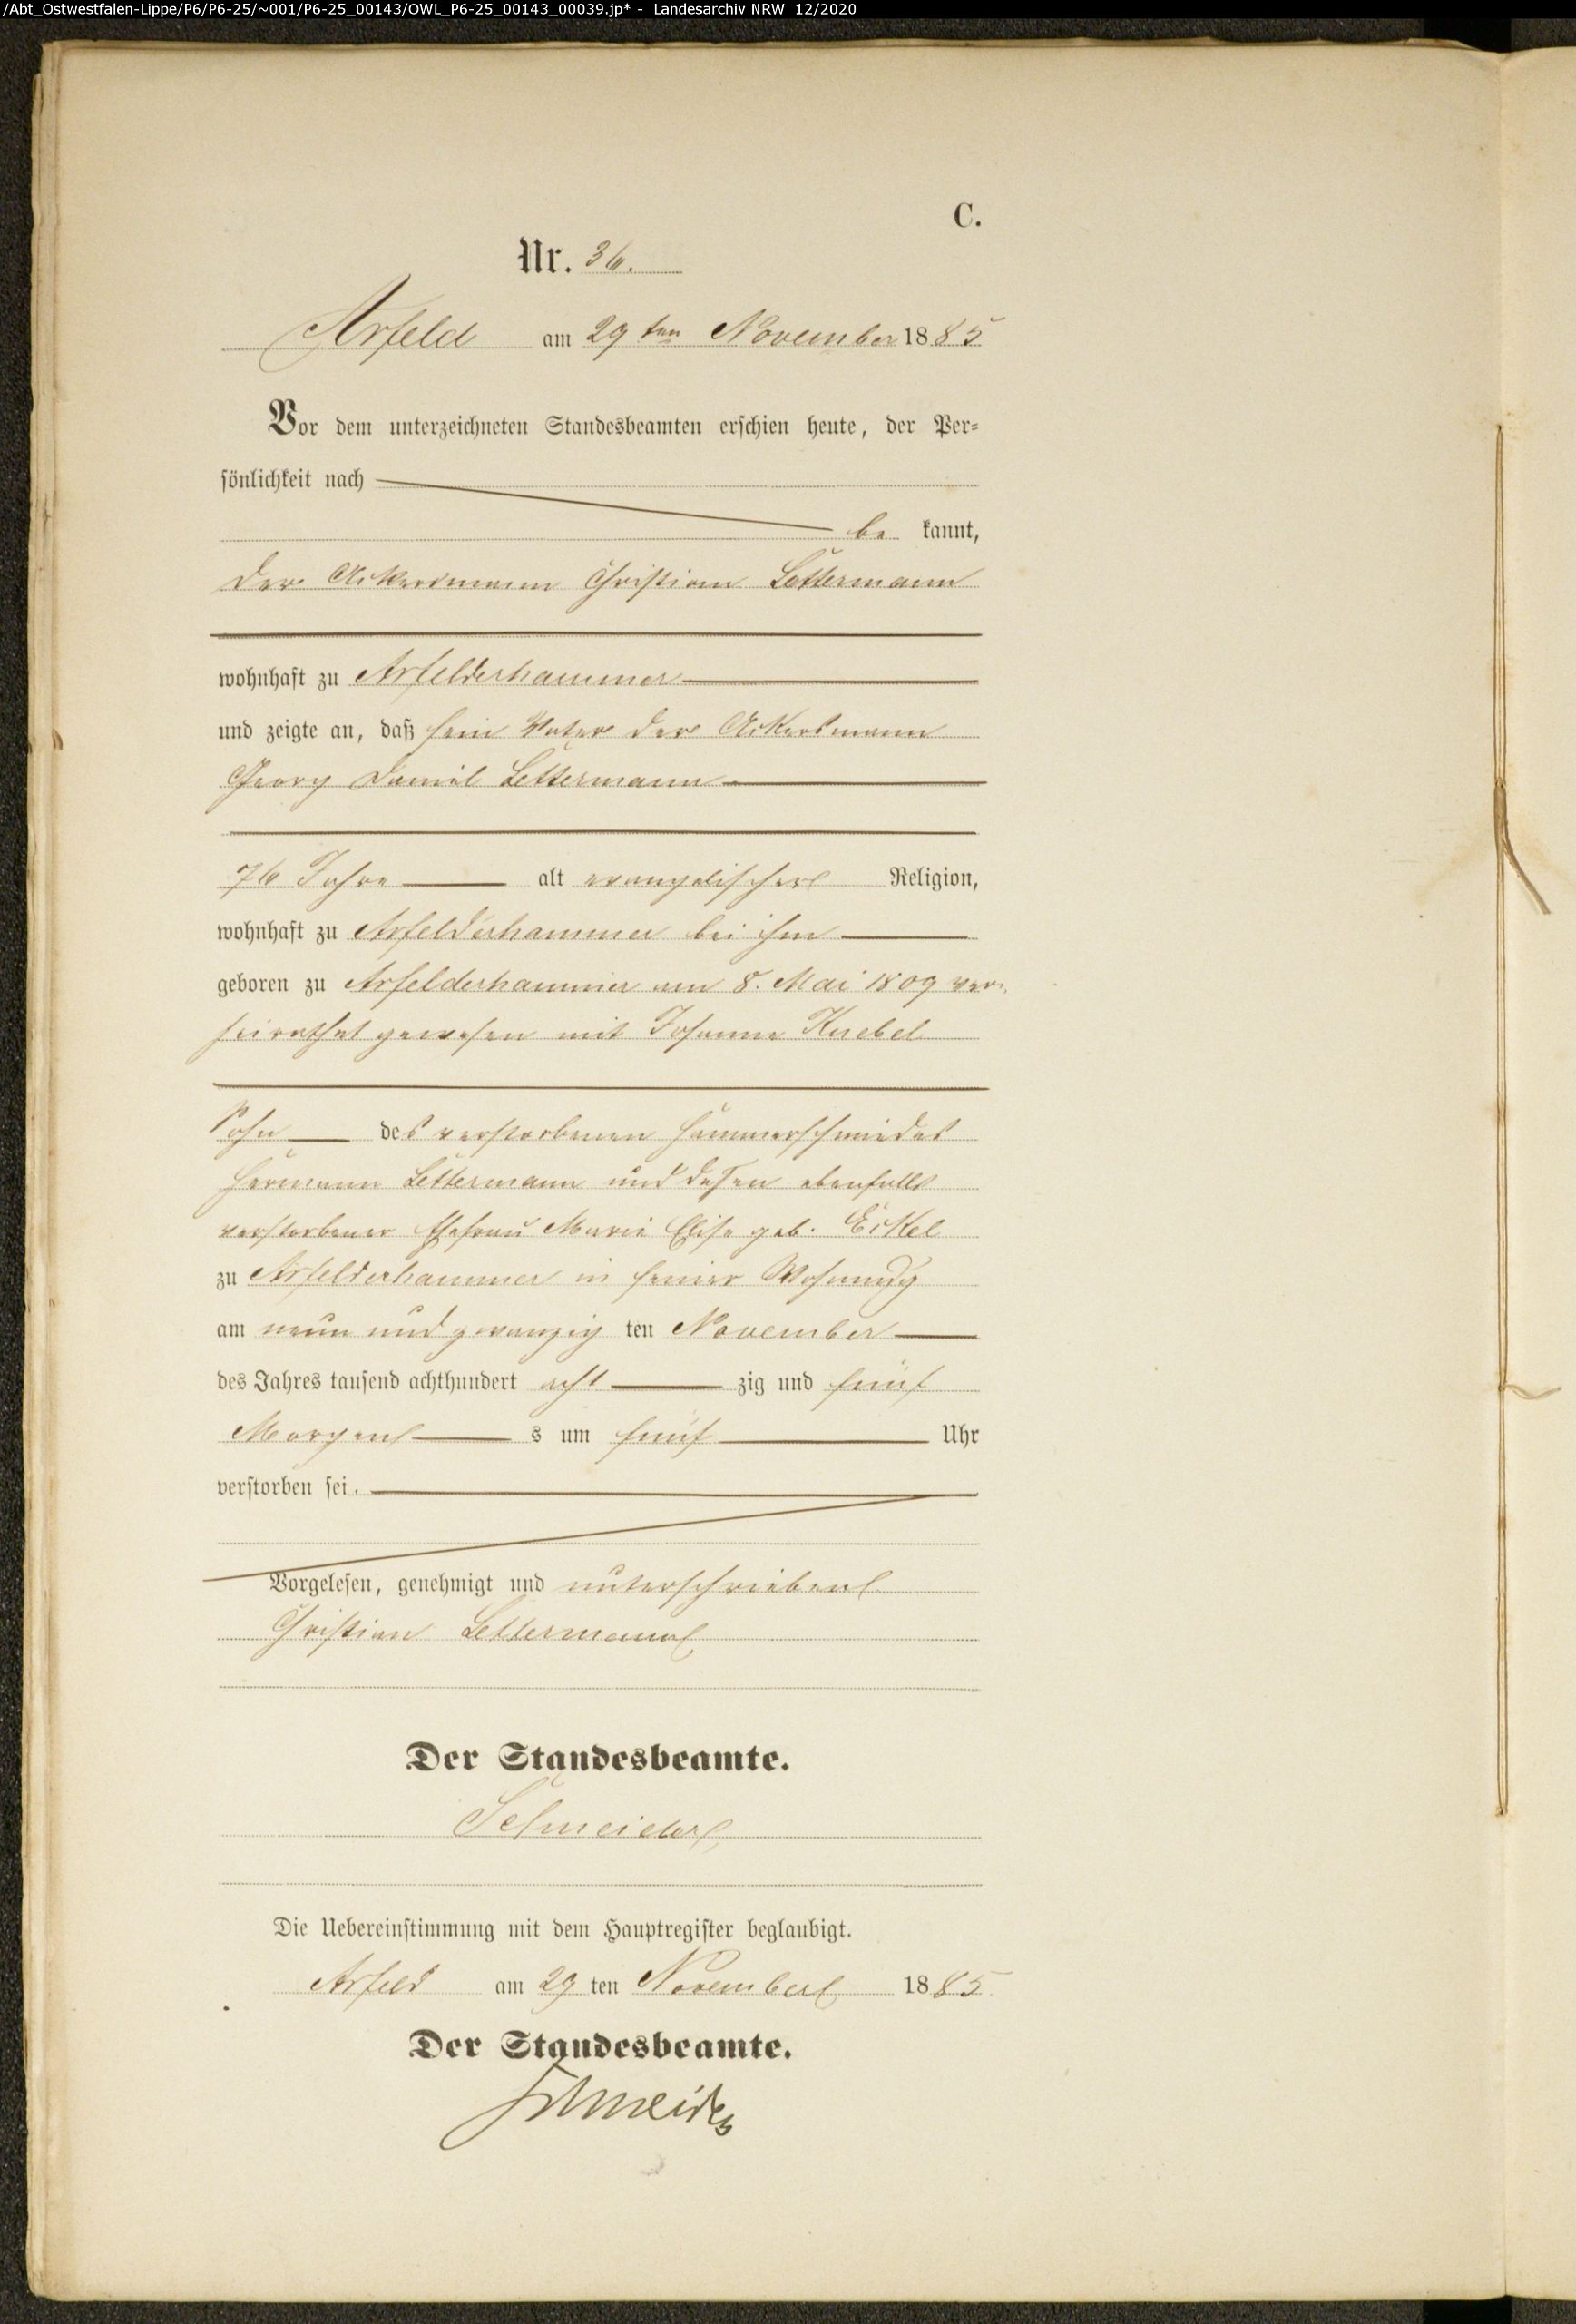 /Abt_Ostwestfalen-Lippe/P6/P6-25/~001/P6-25_00143/OWL_P6-25_00143_00039.jp* - Landesarchiv NRW 12/2020
C.
Nr. 36.
Arfeld am 29 ten November 1885
Vor dem unterzeichneten Standesbeamten erschien heute, der Per-
sönlichkeit nach
be kannt,
der Ackersmann Christian Lettermann
wohnhaft zu Arfelderhammer
und zeigte an, daß sein Vater der Ackersmann
Georg Daniel Lettermann
76 Jahre alt evangelischer Religion,
wohnhaft zu Arfelderhammer bei ihm
geboren zu Arfelderhammer am 8. Mai 1809 ver-
heirathet gewesen mit Johanna Knebel
Sohn des verstorbenen Hammerschmiedes
Hermann Lettermann und dessen ebenfalls
verstorbener Ehefrau Marie Elise geb. Eckel
zu Arfelderhammer in seiner Wohnung
am neun und zwanzig ten November
des Jahres tausend achthundert acht zig und fünf
Morgens s um fünf Uhr
verstorben sei.
Vorgelesen, genehmigt und unterschrieben
Christian Lettermann
Der Standesbeamte.
Schneider
Die Uebereinstimmung mit dem Hauptregister beglaubigt.
Arfeld am 29 ten November 1885.
Der Standesbeamte.
Schneider